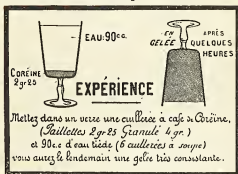 EAU:90cc.
EN
GELÉE
APRÈS
QUELQUES
HEURES
CORÉINE
2gr25
EXPÉRIENCE
Mettez dans un verre une cuillerée à café de Coréine,
(Paillettes 2gr25 Granulé 4 gr.)
et 90c.c d'eau tiède (6 cuillerées à soupe)
vous aurez le lendemain une gelée très consistante.